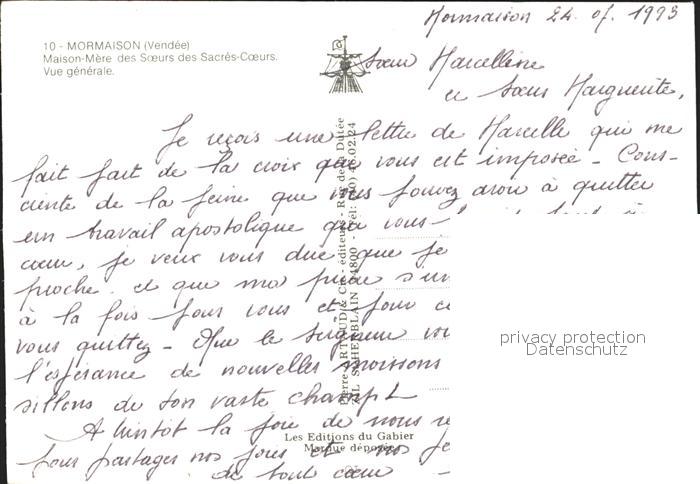 Mormaison 24. 07. 1993
10 - MORMAISON (Vendée)
Maison-Mère des Sœurs des Sacrés-Cœurs.
Vue générale.
Sœur Marcelline
et Sœur Marguerite,
Je reçois une lettre de Marcelle qui me
fait part de la croix qui vous est imposée - Cons-
ciente de la peine que vous pouvez avoir à quitter
un travail apostolique qui vous
cœur, je veux vous dire que je
proche. et que ma prière s'un
à la fois pour vous et pour ce
vous quittez - Que le Seigneur vo
l'espérance de nouvelles moissons
sillons de son vaste champ!
A bientôt la joie de nous re
pour partager nos joies et nos pe
de tout cœur -
Pierre ARTAUD & Cie - éditeurs - Rue de la Dutée
Z.I.L. ST-HERBLAIN 44800 - Tél: (40) 46.02.24
Les Editions du Gabier
Marque déposée
privacy protection
Datenschutz